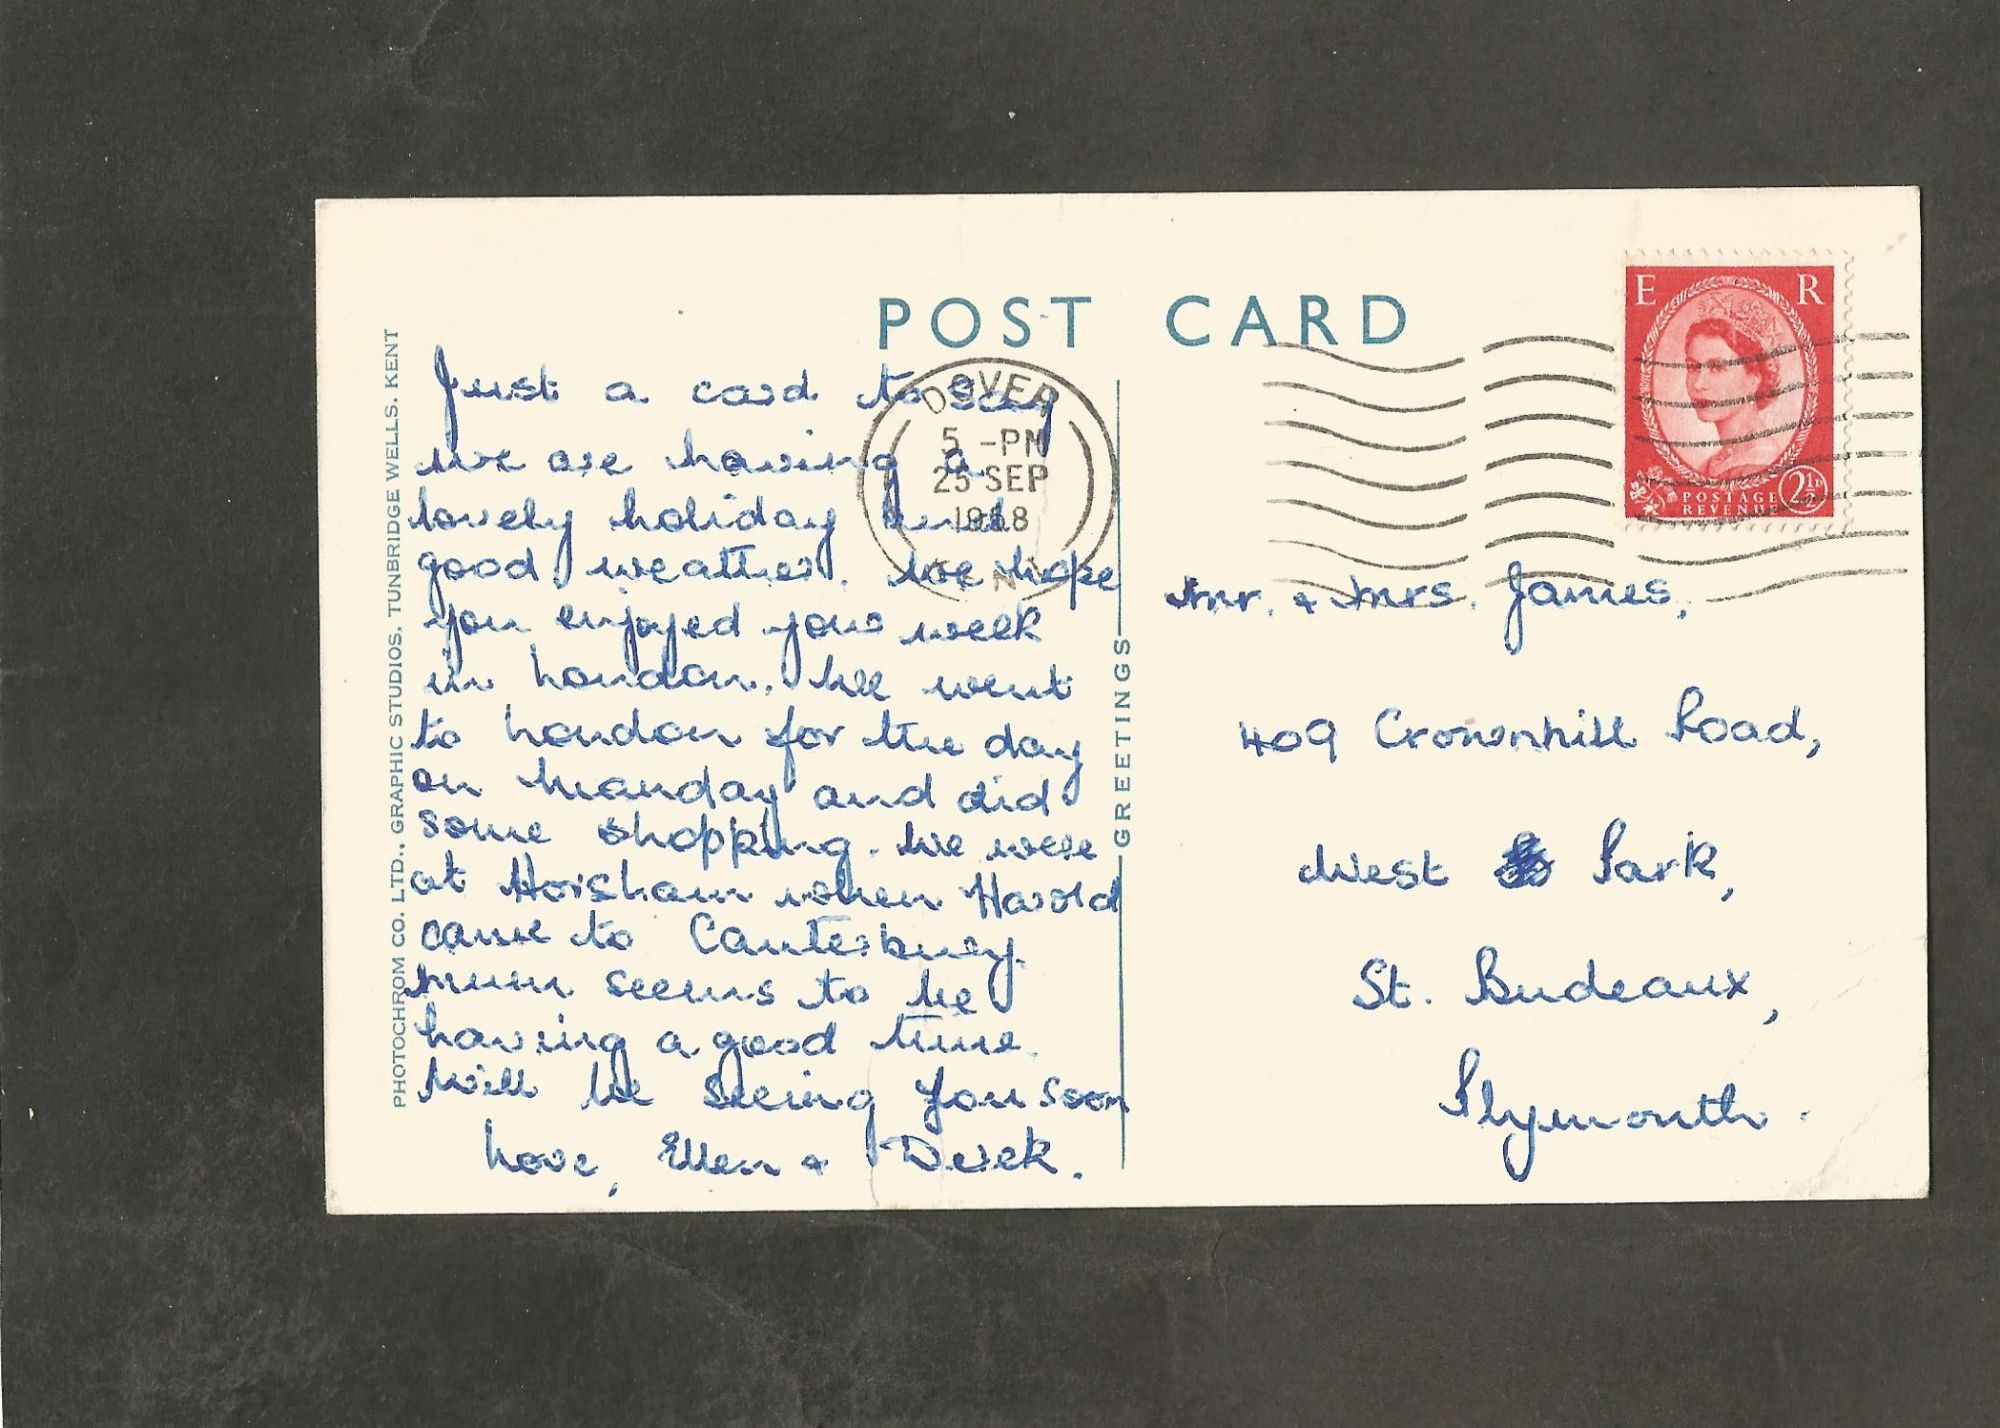 POST CARD
PHOTOCHROM CO. LTD., GRAPHIC STUDIOS, TUNBRIDGE WELLS, KENT
Just a card to say
we are having a
lovely holiday and
good weather. We hope
you enjoyed your week
in London. We went
to London for the day
on Monday and did
some shopping. We were
at Horsham when Harold
came to Canterbury.
Mum seems to be
having a good time.
Will be seeing you soon
Love, Ellen + Derek.
GREETINGS
DOVER
5 -PM
25 SEP
1958
E R
POSTAGE
REVENUE
2½D
Mr. + Mrs. James,
409 Crownhill Road,
West Park,
St. Budeaux,
Plymouth.